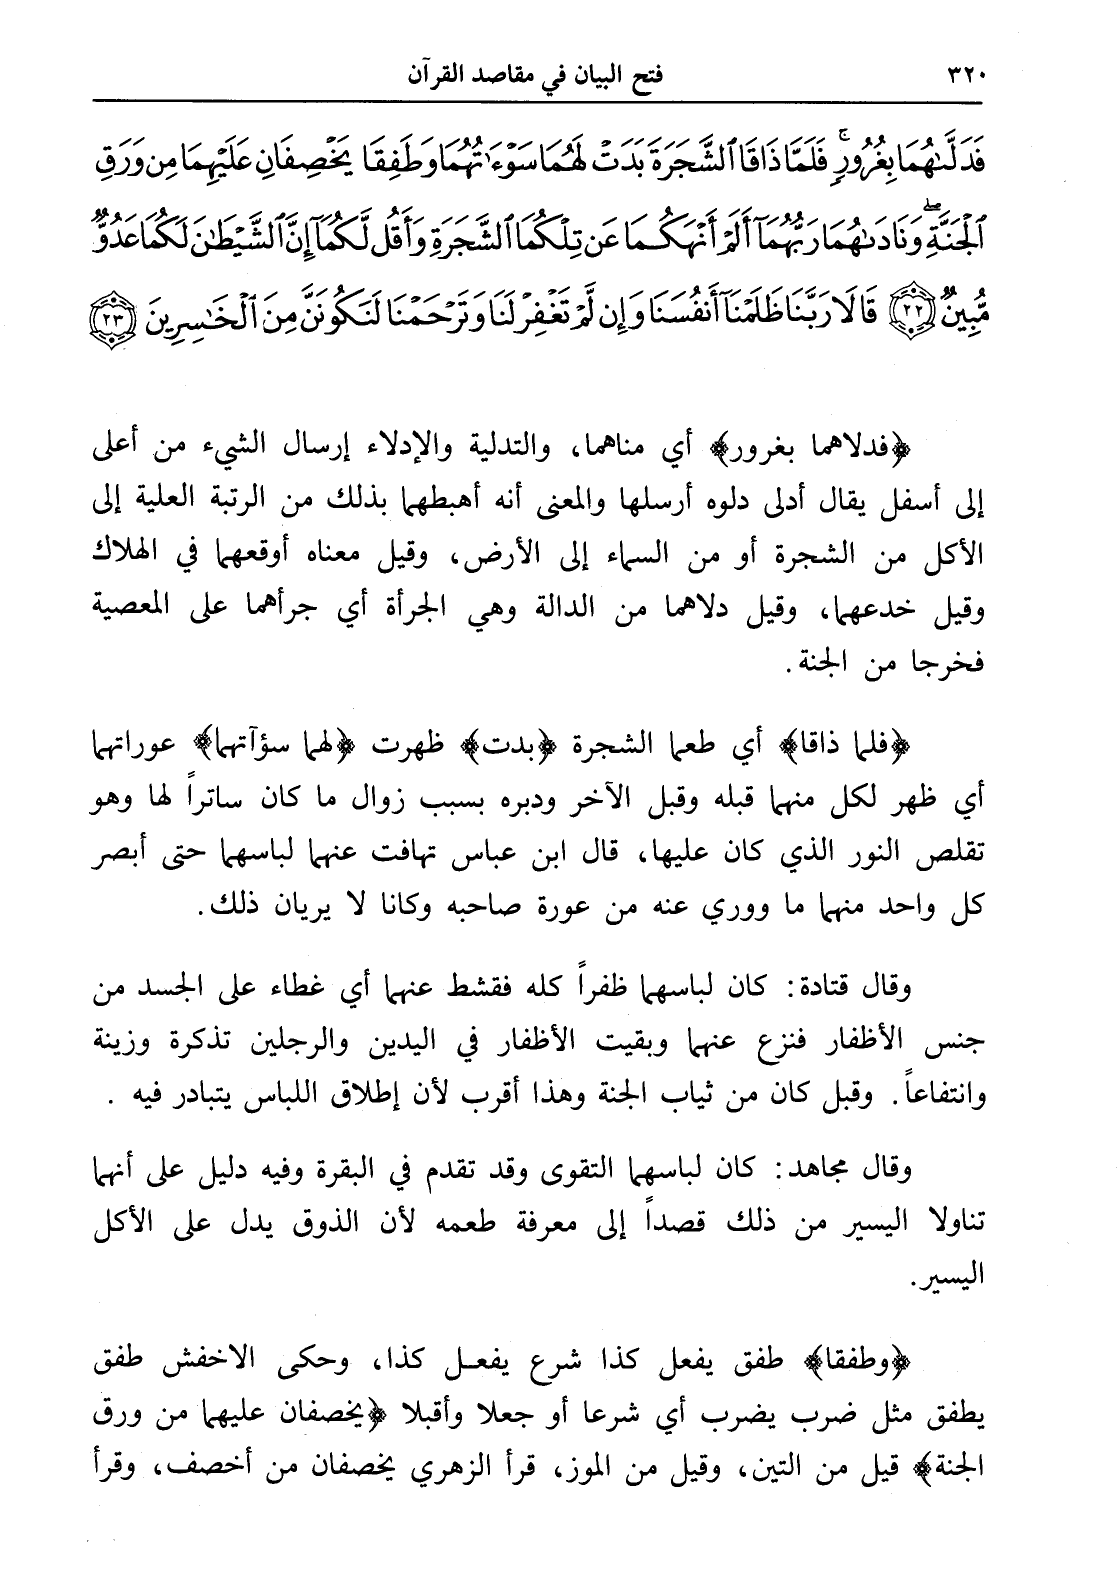 ٣٢٠ فتح البيان في مقاصد القرآن
فَدَلَّىٰهُمَا بِغُرُورٍ ۚ فَلَمَّا ذَاقَا ٱلشَّجَرَةَ بَدَتْ لَهُمَا سَوْءَٰتُهُمَا وَطَفِقَا يَخْصِفَانِ عَلَيْهِمَا مِن وَرَقِ
ٱلْجَنَّةِ ۖ وَنَادَىٰهُمَا رَبُّهُمَآ أَلَمْ أَنْهَكُمَا عَن تِلْكُمَا ٱلشَّجَرَةِ وَأَقُل لَّكُمَآ إِنَّ ٱلشَّيْطَٰنَ لَكُمَا عَدُوٌّ
مُّبِينٌ ﴿٢٢﴾ قَالَا رَبَّنَا ظَلَمْنَآ أَنفُسَنَا وَإِن لَّمْ تَغْفِرْ لَنَا وَتَرْحَمْنَا لَنَكُونَنَّ مِنَ ٱلْخَٰسِرِينَ ﴿٢٣﴾
﴿فدلاهما بغرور﴾ أي مناهما، والتدلية والإدلاء إرسال الشيء من أعلى
إلى أسفل يقال أدلى دلوه أرسلها والمعنى أنه أهبطهما بذلك من الرتبة العلية إلى
الأكل من الشجرة أو من السماء إلى الأرض، وقيل معناه أوقعهما في الهلاك
وقيل خدعهما، وقيل دلاهما من الدالة وهي الجرأة أي جرأهما على المعصية
فخرجا من الجنة.
﴿فلما ذاقا﴾ أي طعما الشجرة ﴿بدت﴾ ظهرت ﴿لهما سؤآتهما﴾ عوراتهما
أي ظهر لكل منهما قبله وقبل الآخر ودبره بسبب زوال ما كان ساتراً لها وهو
تقلص النور الذي كان عليها، قال ابن عباس تهافت عنهما لباسهما حتى أبصر
كل واحد منهما ما ووري عنه من عورة صاحبه وكانا لا يريان ذلك.
وقال قتادة: كان لباسهما ظفراً كله فقشط عنهما أي غطاء على الجسد من
جنس الأظفار فنزع عنهما وبقيت الأظفار في اليدين والرجلين تذكرة وزينة
وانتفاعاً. وقبل كان من ثياب الجنة وهذا أقرب لأن إطلاق اللباس يتبادر فيه .
وقال مجاهد: كان لباسهما التقوى وقد تقدم في البقرة وفيه دليل على أنهما
تناولا اليسير من ذلك قصداً إلى معرفة طعمه لأن الذوق يدل على الأكل
اليسير.
﴿وطفقا﴾ طفق يفعل كذا شرع يفعـل كذا، وحكى الاخفش طفق
يطفق مثل ضرب يضرب أي شرعا أو جعلا وأقبلا ﴿يخصفان عليهما من ورق
الجنة﴾ قيل من التين، وقيل من الموز، قرأ الزهري يخصفان من أخصف، وقرأ